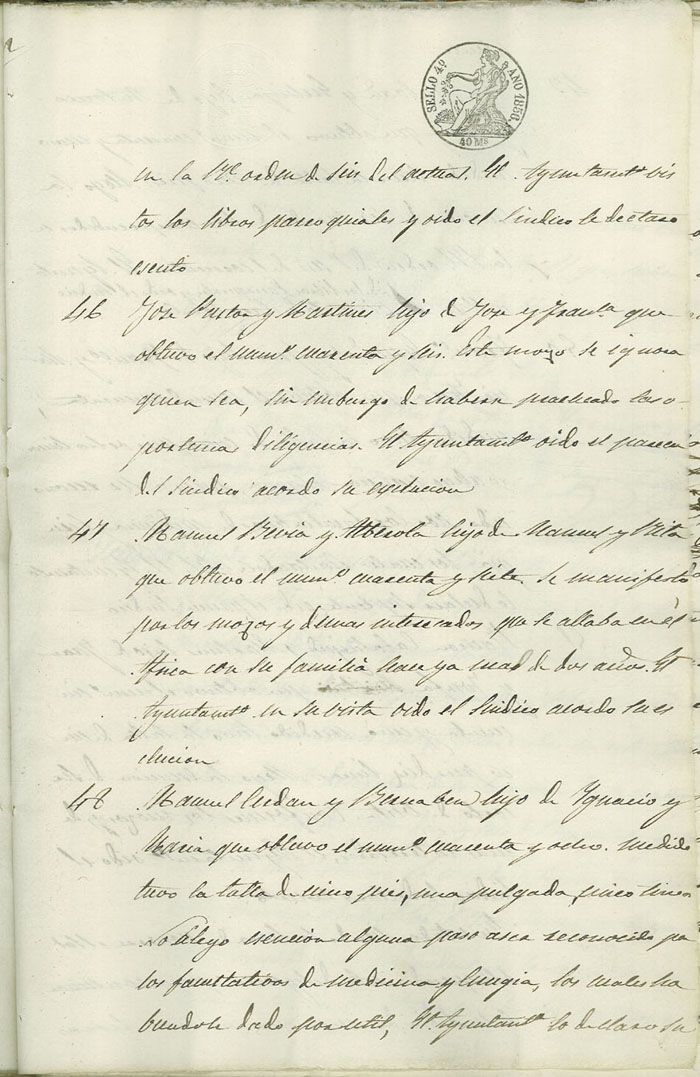 SELLO 4º AÑO 1850.
40 Ms
en la Rl. orden de seis del actual. El Ayuntamto. vis
tos los libros parroquiales y oido el Sindico le declaro
esento
46 Jose Pastor y Martines hijo de Jose y Franca. que
obtuvo el numº. cuarenta y seis. Este mozo se ignora
quien sea, sin embargo de haberse practicado las o-
portunas diligencias. El Ayuntamto. oido el parecer
del Sindico acordo su esclucion
47 Manuel Bevia y Alberola hijo de Manuel y Rita
que obtuvo el numº. cuarenta y siete. Se manifesto
por los mozos y demas interesados que se allaba en el
Africa con su familia hace ya mas de dos años. El
Ayuntamto. en su vista oido el Sindico acordo su es
clucion
48 Manuel y Bernabeu hijo de Ygnacio y
Maria que obtuvo el numº. cuarenta y ocho. Medido
tuvo la talla de cinco pies, una pulgada, cinco lineas
No alego esencion alguna paso a ser reconocido por
los facultativos de medicina y Cirugia, los cuales ha
biendole dado por util, El Ayuntamto. lo declaro su